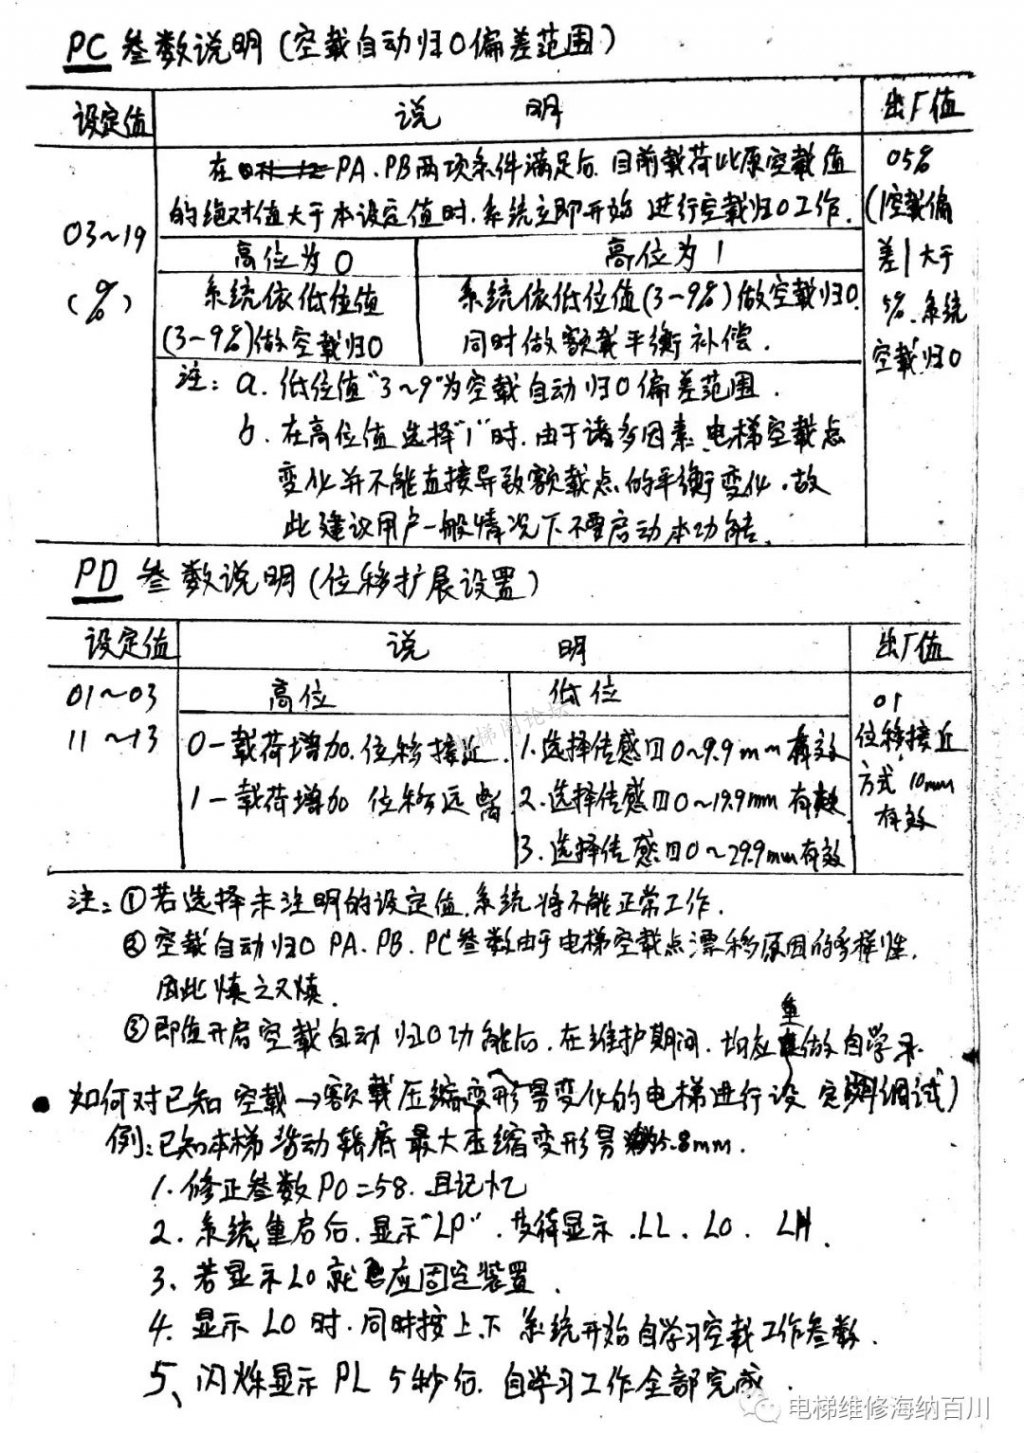 PC 叁数说明(空载自动归0偏差范围)
设定值 说 明 出厂值
在 PA、PB两项条件满足后.目前载荷比原空载值 05%
的绝对值大于本设定值时.系统立即开始 进行空载归0工作. (|空载偏
03~19 高位为0 高位为1 差|大于
(%) 系统依低位值 系统依低位值(3~9%)做空载归0. 5%.系统
(3~9%)做空载归0 同时做额载平衡补偿. 空载归0
注: a. 低位值"3~9"为空载自动归0偏差范围.
b. 在高位值选择"1"时.由于诸多因素、电梯空载点
变化并不能直接导致额载点的平衡变化.故
此建议用户一般情况下不要启动本功能.
PD 叁数说明(位移扩展设置)
设定值 说 明 出厂值
01~03 高位 低位 01
11~13 0-载荷增加.位移接近 1.选择传感口0~9.9mm有效 位移接近
1-载荷增加 位移远离 2.选择传感口0~19.9mm有效 方式.10mm
3.选择传感口0~29.9mm有效 有效
注:①若选择未注明的设定值.系统将不能正常工作.
②空载自动归0 PA、PB、PC叁数由于电梯空载点漂移原因的多样性.
因此慎之又慎.
③即值开启空载自动归0功能后.在维护期间.均应重做自学习.
●如何对已知空载→额载压缩变形易变化的电梯进行设定(调试)
例:已知本梯活动轿底最大压缩变形量 5.8mm.
1.修正叁数P0=58.且记忆
2.系统重启后.显示"LP".获得显示.LL、L0、LH.
3、若显示L0就应固定装置.
4.显示L0时.同时按上、下系统开始自学习空载工作叁数.
5、闪烁显示PL 5秒后.自学习工作全部完成.
电梯维修海纳百川